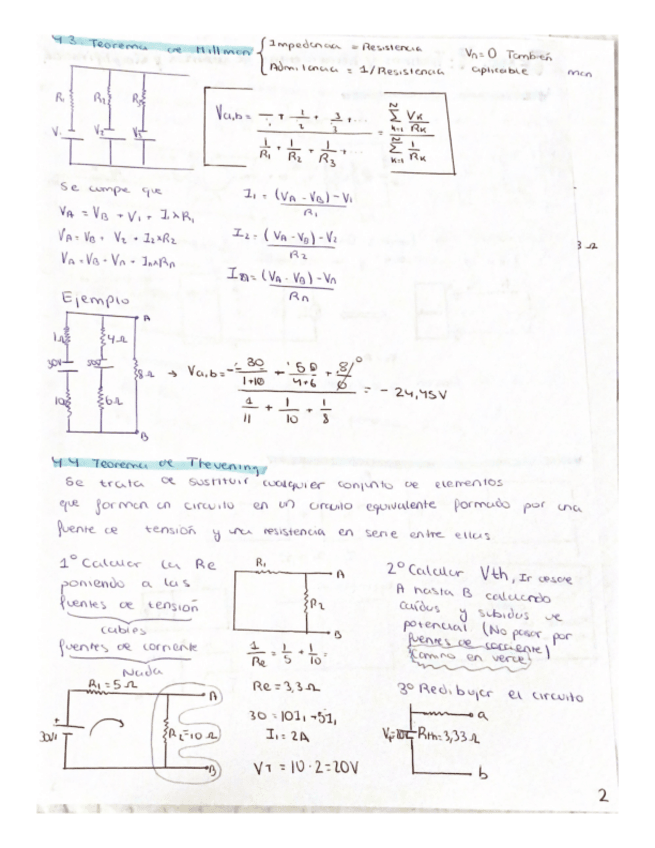 4.3 Teorema de Millman { Impedencia = Resistencia
Admitencia = 1/Resistencia
Vn = 0 También aplicable
R1 R2 R3
V1 V2 V3
Va,b =
1/R1 + 1/R2 + 1/R3 + ...
= Σ(k=1, N) Vk/Rk / Σ(k=1, N) 1/Rk
Se cumpe que
VA = VB + V1 + I1×R1
VA = VB + V2 + I2×R2
VA = VB + Vn + In×Rn
I1 = (VA - VB) - V1 / R1
I2 = (VA - VB) - V2 / R2
In = (VA - VB) - Vn / Rn
3 Ω
Ejemplo
A
1Ω 4Ω
30V 50V 8Ω
10Ω 6Ω
B
→ Va,b = - 30/1+10 + 50/4+6 + 8/0 / 1/11 + 1/10 + 1/8 = - 24,45V
4.4 Teorema de Thevening
Se trata de sustituir cualquier conjunto de elementos
que forman un circuito en un circuito equivalente formado por una
fuente de tensión y una resistencia en serie entre ellas
1º Calcular la Re
poniendo a las
fuentes de tensión
cables
fuentes de corriente
Nada
R1 A
R2
B
1/Re = 1/5 + 1/10 =
Re = 3,3Ω
30 = 10I1 + 5I1
I1 = 2A
VT = 10 · 2 = 20V
2º Calcular Vth, Ir desde
A hasta B calculando
caídas y subidas de
potencial (No pasar por
fuentes de corriente)
Camino en verde
3º Redibujar el circuito
R1 = 5Ω
A
30V R2 = 10Ω
B
a
Rth = 3,33Ω
b
2